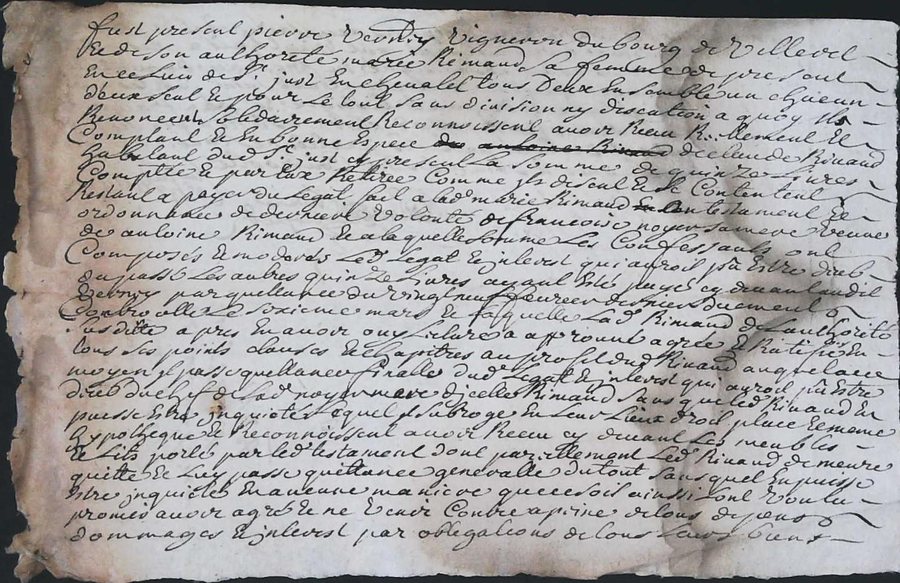 fust present pierre verney vigneron du bourg de Villerel
Et de son authorité marie Rimaud sa femme de present
En ce lieu de St just En chevalet tous Deux Ensemble un chacun
deux seul et pour Le tout sans division ny discution a quoy ils
Renoncent solidairement Reconnoissent avoir Receu Rellement Et
Comptant Et En bonne Espece de antoine Rimaud de claude Rimaud
habitant dud St just cy present La somme de quinze Livres
Comptée Et par Eux Retirée Comme ils disent Et se Contentent
Restant a payer du Legat fait a lad marie Rimaud testament Et
ordonnance de derniere volonté de francoise noyer sa mere veuve
de antoine Rimaud Et a laquelle somme Les Confessants ont
Composés Et moderés Led Legat Et interest qui auroit pu Estre dub
du passé Les autres quinze Livres ayant Esté payé cy devant aud
verney par quellance du vingt neuf fevrier dernier duement
Controollée Le sixieme mars Et laquelle Lad Rimaud de L authorité
susditte apres En avoir ouy Lecture a approuvé agréé Et Ratifié En
tous ses points clauses Et chapitres au profit dud Rimaud auquel a ce
moyen il passe quellance finalle dud Legat Et interest qui auroit pu Estre
dub du chef de Lad noyer mere d icelle Rimaud sans que led Rimaud En
puisse Estre inquieté Lequel il subroge En Leur Lieux droit place Et meme
hypotheque Et Reconnoissent avoir Receu cy devant Les meubles
Et Lits porté par led testament dont parellement Led Rimaud demeure
quitte Et Luy passe quittance generalle du tout sans quel En puisse
Estre inquieté En aucune maniere que ce soit ainsi ont voulu
promis avoir agré Et ne venir Contre a peine de tous depens
dommages Et interest par obligations de tous Leurs biens